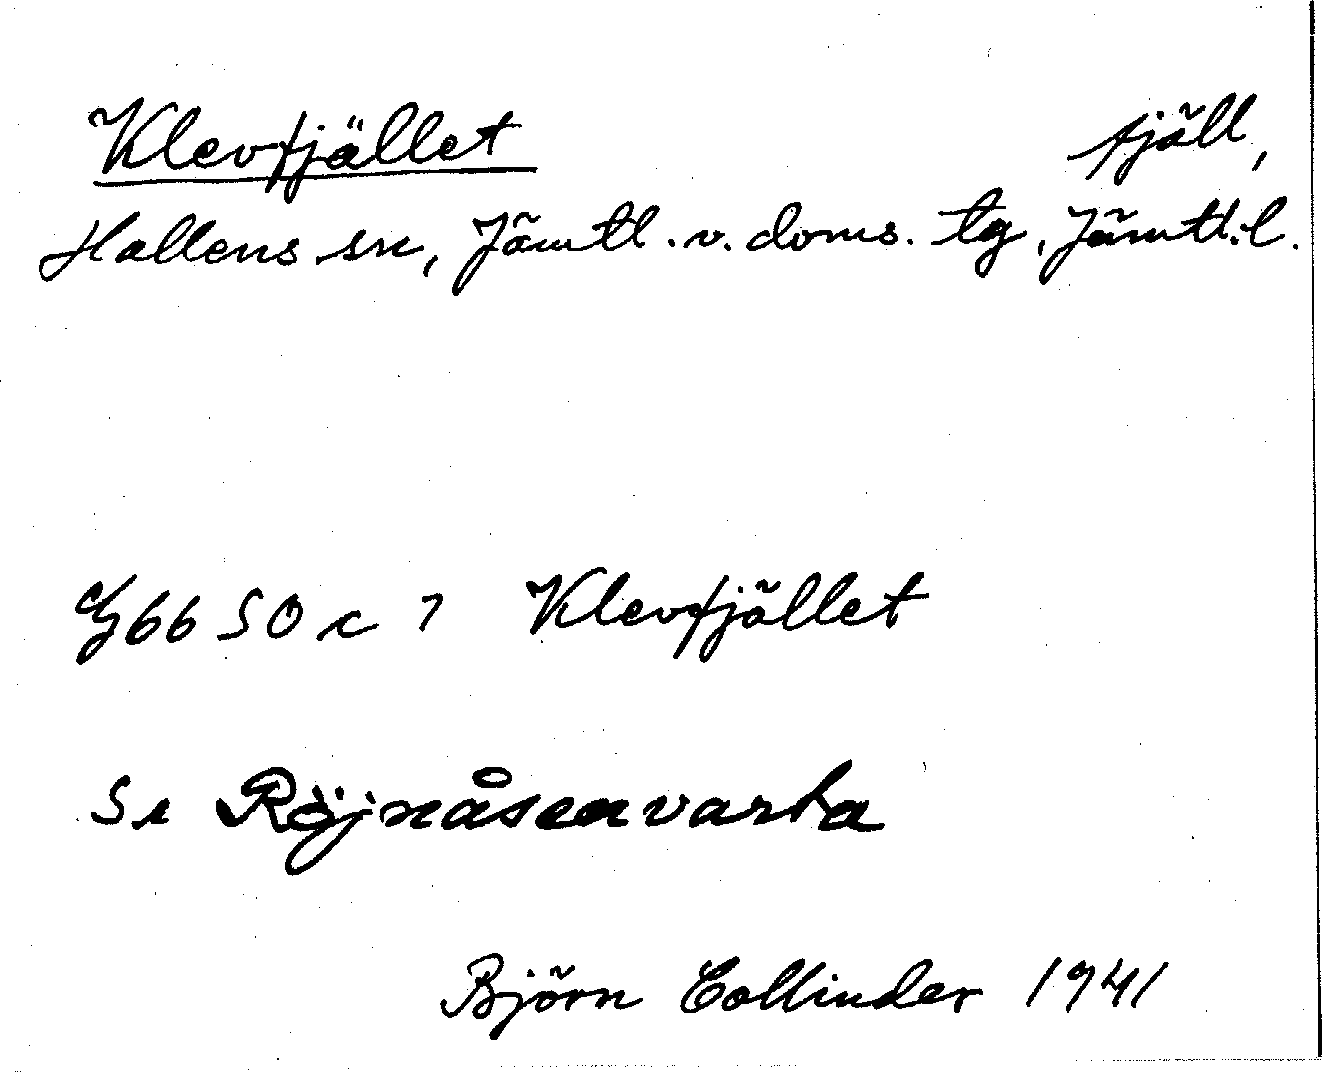 Klevfjället fjäll,
Hallens sn, Jämtl. v. doms. tg, Jämtl. l.
G66 SO c 7 Klevfjället
Se Röjnåsenvarta
Björn Collinder 1941